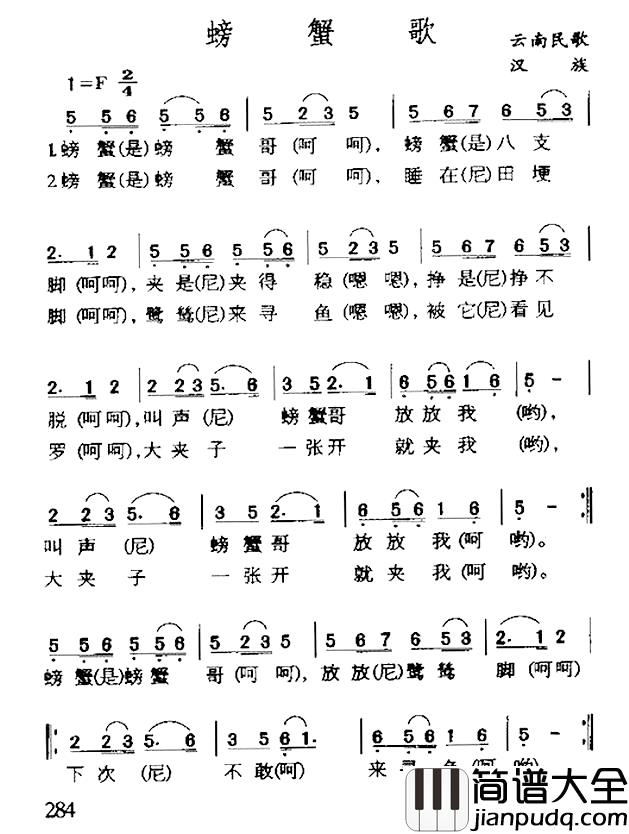 螃蟹歌
云南民歌
汉族
1=F 2/4
5 5 6 5 5 6 | 5 2 3 5 | 5 6 7 6 5 3 |
1.螃蟹(是)螃 蟹 哥(呵 呵), 螃 蟹(是)八 支
2.螃蟹(是)螃 蟹 哥(呵 呵), 睡 在(尼)田 埂
2. 1 2 | 5 5 6 5 5 6 | 5 2 3 5 | 5 6 7 6 5 3 |
脚(呵呵),夹是(尼)夹得 稳(嗯 嗯),挣是(尼)挣不
脚(呵呵),鹭鸶(尼)来寻 鱼(嗯 嗯),被它(尼)看见
2. 1 2 | 2 2 3 5. 6 | 3 5 2. 1 | 6 5 6 1 6 | 5 - |
脱(呵呵),叫声(尼) 螃蟹哥 放放我 (哟),
罗(呵呵),大夹子 一张开 就夹我 (哟),
2 2 3 5. 6 | 3 5 2. 1 | 6 5 6 1 6 | 5 - :||
叫声 (尼) 螃蟹哥 放放我(呵 哟)。
大夹 子 一张开 就夹我(呵 哟)。
5 5 6 5 5 6 | 5 2 3 5 | 5 6 7 6 5 3 | 2. 1 2 |
螃蟹(是)螃蟹 哥(呵 呵),放放(尼)鹭鸶 脚(呵呵)
||: 2 2 3 5. 6 | 3 5 6 1 | 6 5 6 1 6 | 5 - :||
下次 (尼) 不敢(呵) 来
284
简谱大全
jianpudq.com